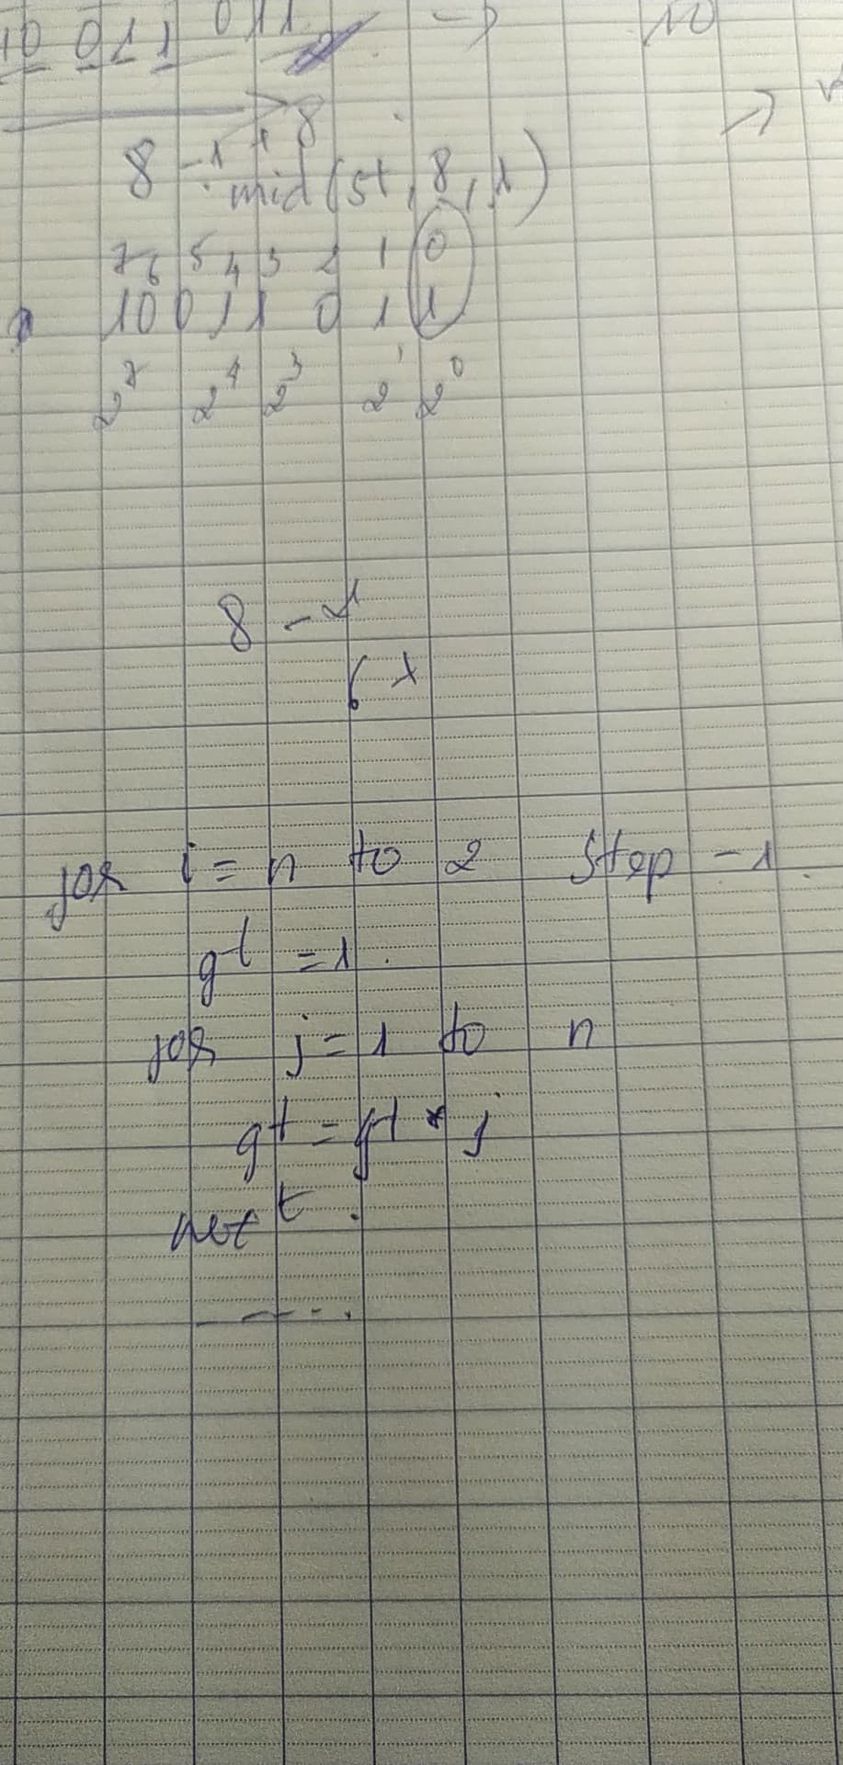 10 011 011 → 10
8 - 1 + 8
mid(st, 8, 1)
7 6 5 4 3 2 1 0
1 0 0 1 1 0 1 1
2^7 2^4 2^3 2^1 2^0
8 -
for i = n to 2 step -1
gt = 1
for j = 1 to n
gt = gt * j
next